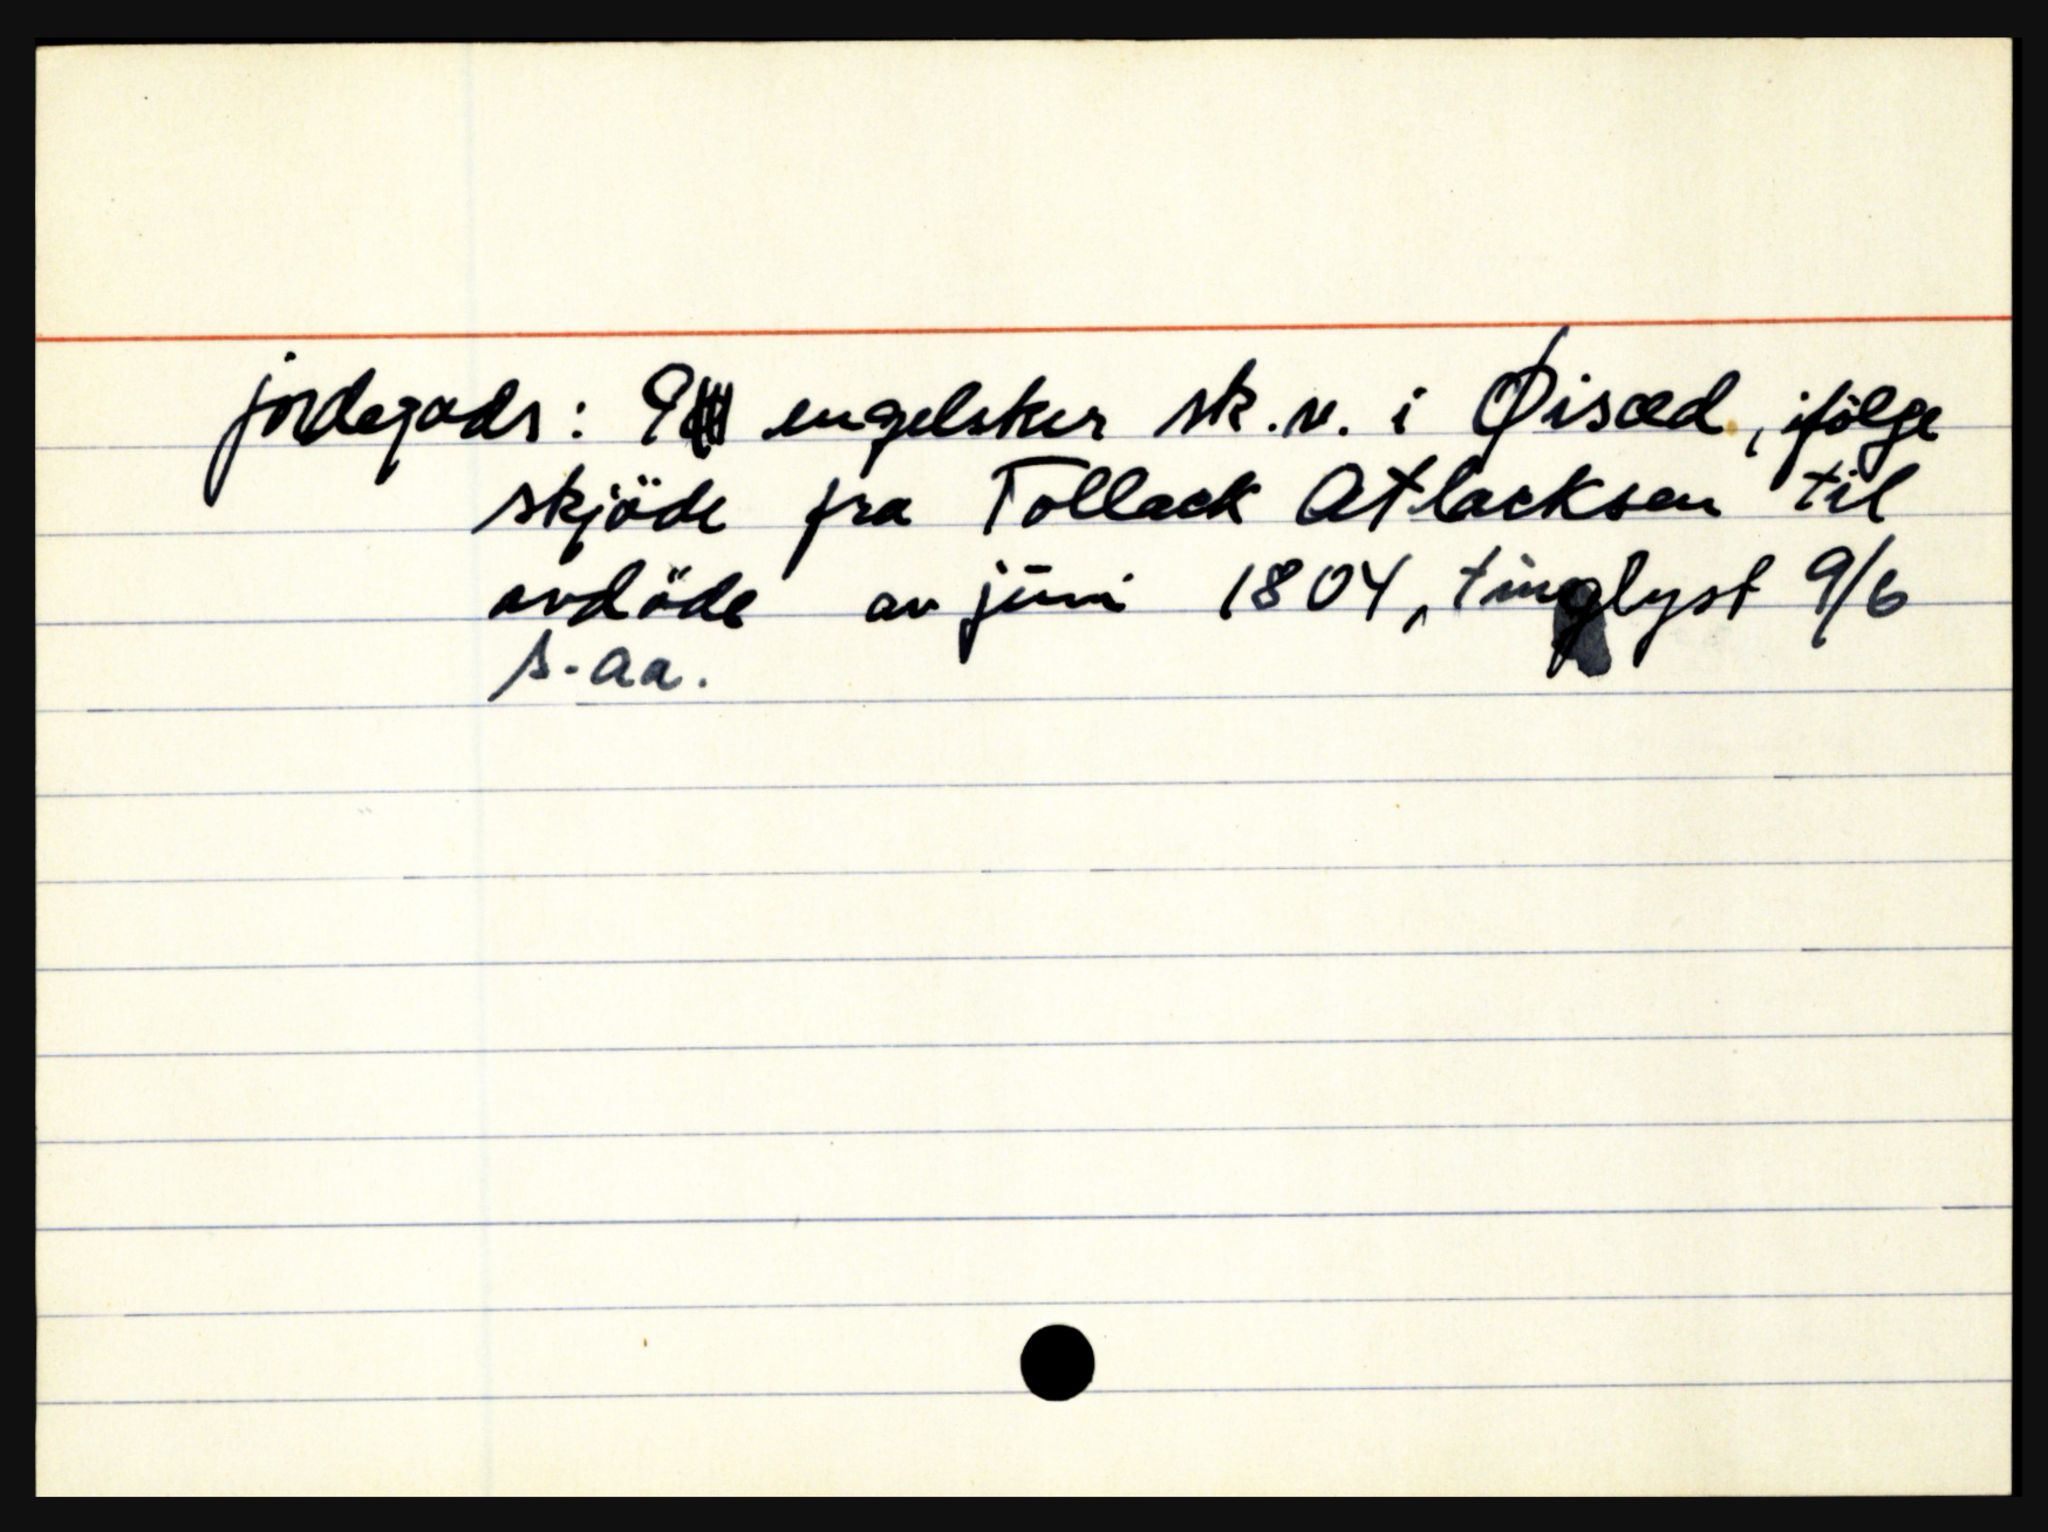 jordegods: 9 engelsker sk.v. i Øisæd, ifölge
skjöde fra Tollack Atlacksen til
avdöde av juni 1804, tinglyst 9/6
s.aa.